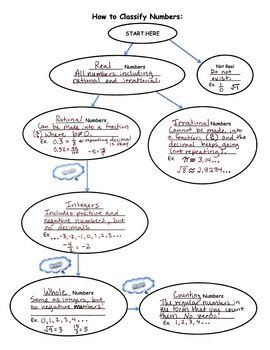 How to Classify Numbers:
START HERE
Real Numbers
All numbers including
rational and irrational.
Not Real
Do not
exist
Ex. 1/0 √-1
Rational Numbers
Can be made into a fraction
(a/b) where b≠0.
Ex. 0.3 = 1/3 ← repeating decimal
is okay
0.52 = 52/100 -5 = -5/1
Irrational Numbers
Cannot be made into
a fraction (a/b) and the
decimal keeps going
(not repeating).
Ex. π ≈ 3.14...
√8 ≈ 2.8284...
Integers
Includes positive and
negative numbers, but
no decimals
Ex. ...-3,-2,-1,0,1,2,3...
= -2
Whole Numbers
Same as integers, but
no negative numbers.
Ex. 0,1,2,3,4...
√9 = 3 15/3 = 5
Counting Numbers
The regular numbers in
the form that you count
them. No zeros!
Ex. 1,2,3,4...